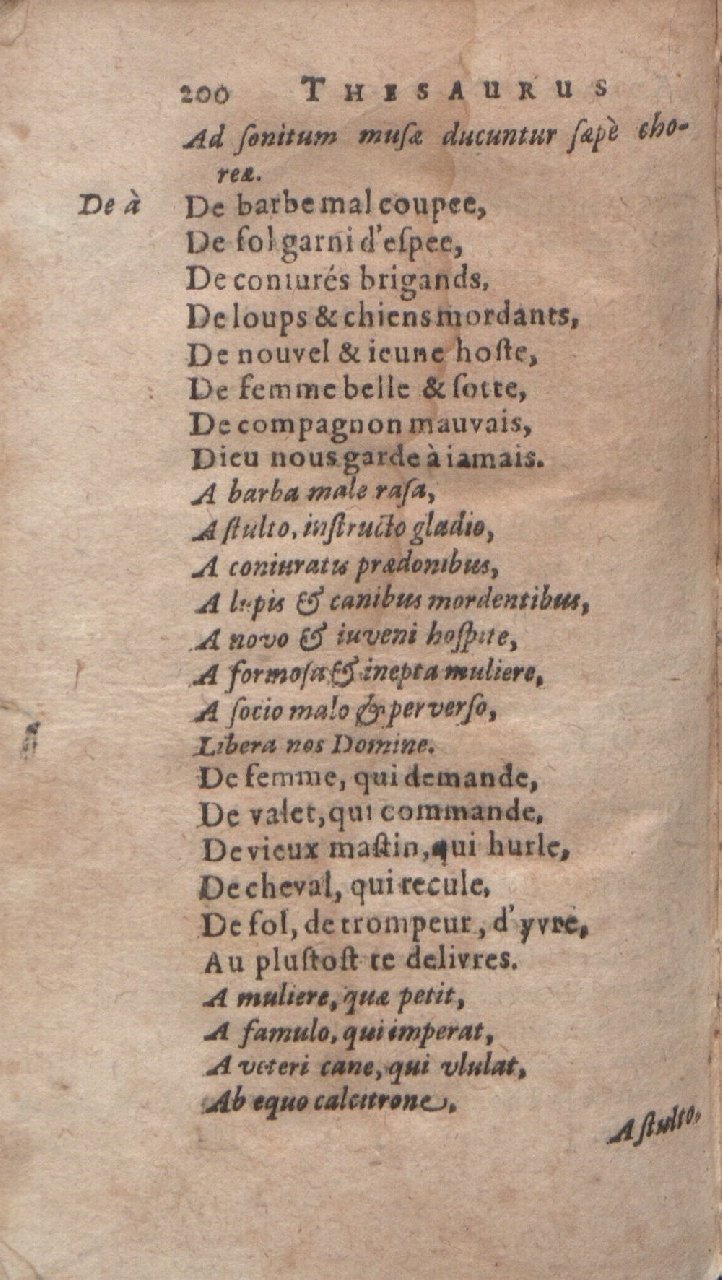 200 THESAURUS
Ad ſonitum muſæ ducuntur ſæpè cho-
reæ.
De à De barbe mal coupee,
De fol garni d'eſpee,
De coniurés brigands,
De loups & chiens mordants,
De nouvel & ieune hoſte,
De femme belle & ſotte,
De compagnon mauvais,
Dieu nous garde à iamais.
A barba male raſa,
A ſtulto, inſtructo gladio,
A coniuratis prædonibus,
A lupis & canibus mordentibus,
A novo & iuveni hoſpite,
A formoſa & inepta muliere,
A ſocio malo & perverſo,
Libera nos Domine.
De femme, qui demande,
De valet, qui commande,
De vieux maſtin, qui hurle,
De cheval, qui recule,
De fol, de trompeur, d'yvre,
Au pluſtoſt te delivres.
A muliere, quæ petit,
A famulo, qui imperat,
A veteri cane, qui vlulat,
Ab equo calcitrone,
A ſtulto,